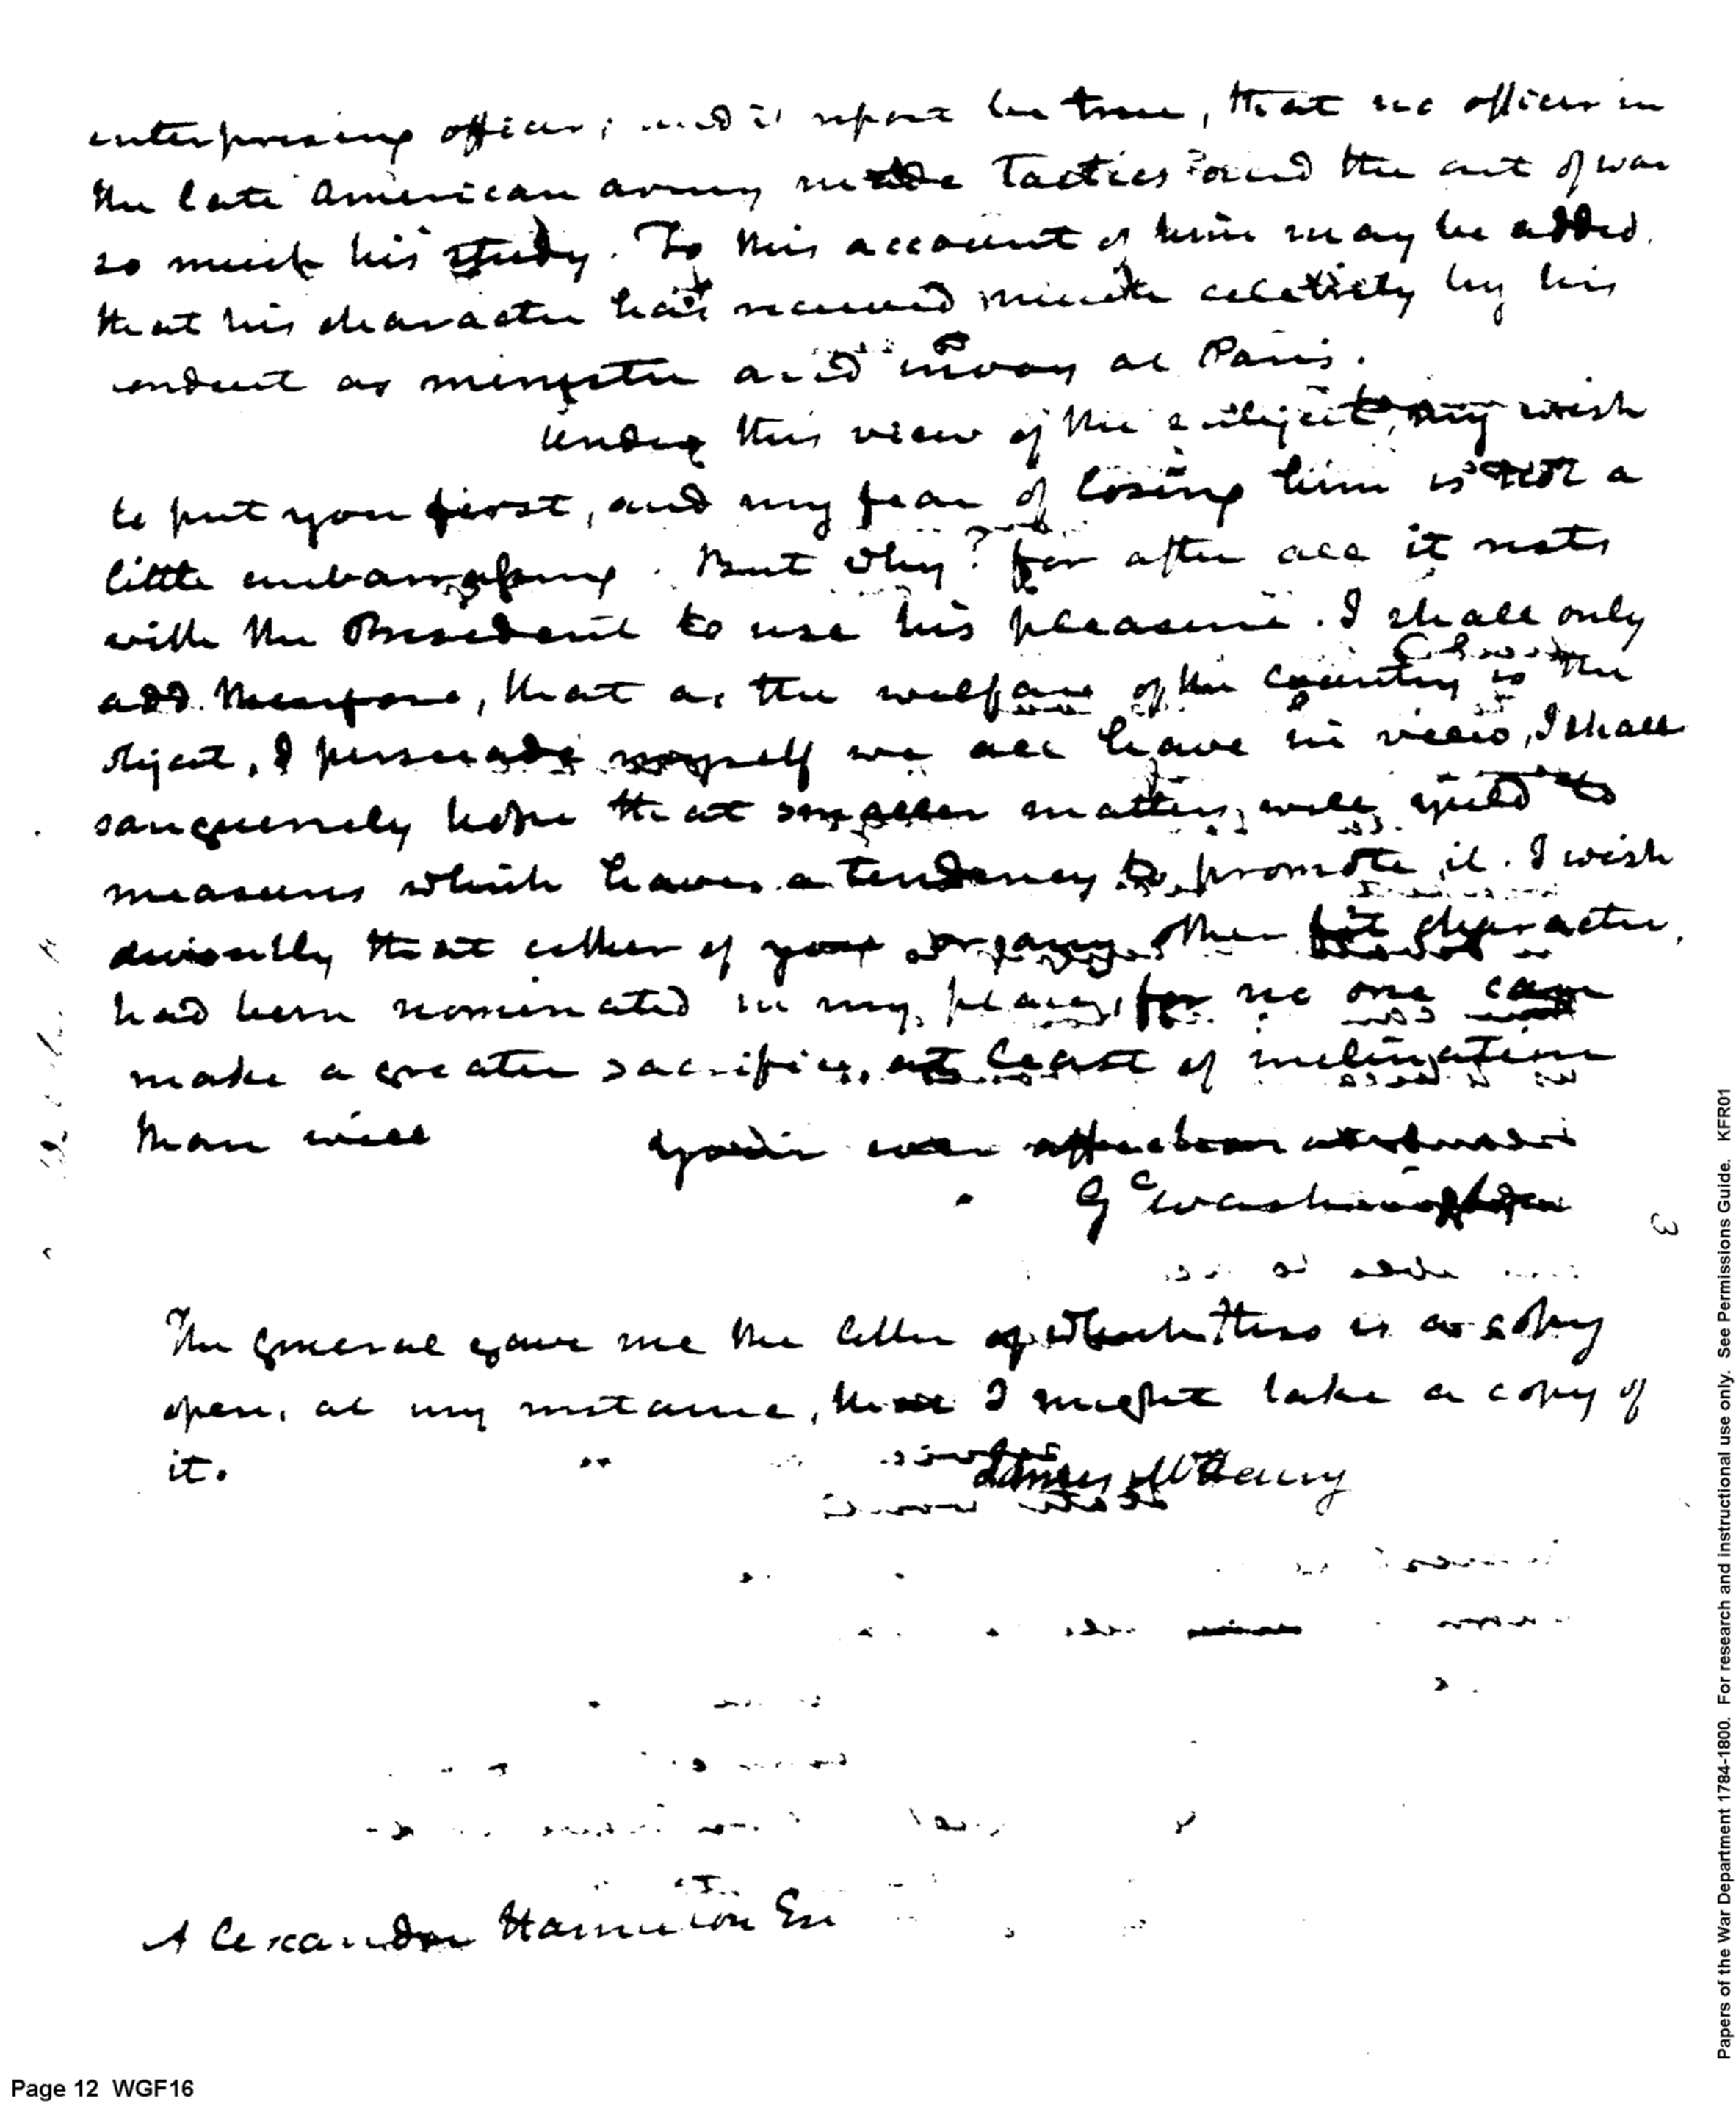 enterprising officer; and if report be true, that no officer in
the late American army made Tactics and the art of war
so much his study. To this account of him may be added,
that his character has received much celebrity by his
conduct as minister and envoy at Paris.
Under this view of the subject, my wish
to put you first, and my fear of losing him is not a
little embarrassing. But why? for after all it rests
with the President to use his pleasure. I shall only
add therefore, that as the welfare of the country is the
object, I persuade myself we all have in view, I shall
sanguinely hope that smaller matters will yield to
measures which have a tendency to promote it. I wish
devoutly that either of you or any other fit character
had been nominated in my place, for no one can
make a greater sacrifice, at least of inclination
than will your ever affectionate
G Washington
The general gave me the letter of which this is a copy
open, at my instance, that I might take a copy of
it.
James McHenry
Alexander Hamilton Esr
Page 12 WGF16
Papers of the War Department 1784-1800. For research and instructional use only. See Permissions Guide. KFR01